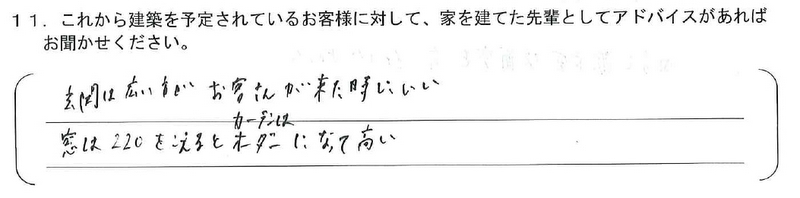 11．これから建築を予定されているお客様に対して、家を建てた先輩としてアドバイスがあれば
お聞かせください。
玄関は広い方が お客さんが来た時にいい
カーテンは
窓は220をこえると オーダーになって高い